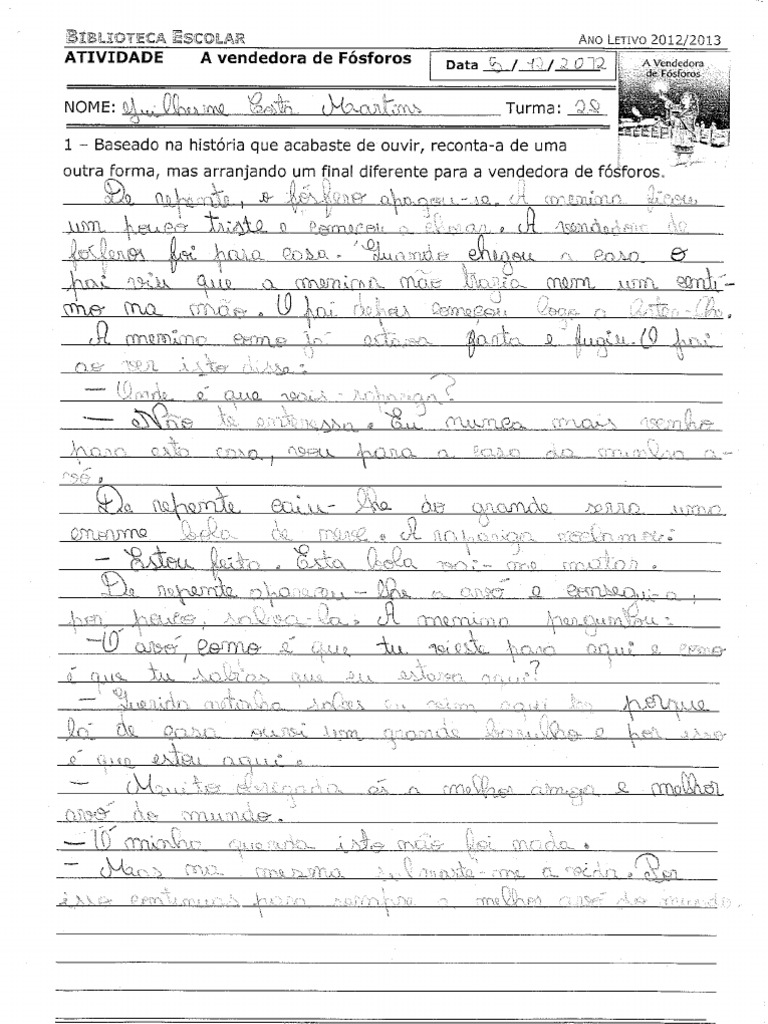 BIBLIOTECA ESCOLAR ANO LETIVO 2012/2013
ATIVIDADE A vendedora de Fósforos Data 5/12/2012
A Vendedora
de Fósforos
NOME: Guilherme Costa Martins Turma: 28
1 – Baseado na história que acabaste de ouvir, reconta-a de uma
outra forma, mas arranjando um final diferente para a vendedora de fósforos.
De repente, o fósfero apagou-se. A menina ficou
um pouco triste e começou a chorar. A vendedora de
fósferos foi para casa. Quando chegou a casa o
pai viu que a menina não trazia nem um centi-
mo na mão. O pai depois começou logo a
A menina como já estava farta e fugiu. O pai
ao ver isto disse:
– Onde é que vais rapariga?
– Não te enteressa. Eu nunca mais venho
para esta casa, vou para a casa da minha a-
vó.
De repente caiu-lhe do grande serra uma
enorme bola de neve. A rapariga reclamou:
– Estou feita. Esta bola vai-me matar.
De repente apareceu-lhe a avó e consegui-a,
por pouco, salva-la. A menina perguntou:
– Ó avó, como é que tu vieste para aqui e como
é que tu sabias que eu estava aqui?
– Querida netinha sabes eu vim aqui porque
lá de casa ouvi um grande barulho e por isso
é que estou aqui.
– Muito obrigada és a melhor amiga e melhor
avó do mundo.
– Ó minha querida isto não foi nada.
– Mas na mesma salvaste-me a vida. Por
isso continuas para sempre a melhor avó do mundo.